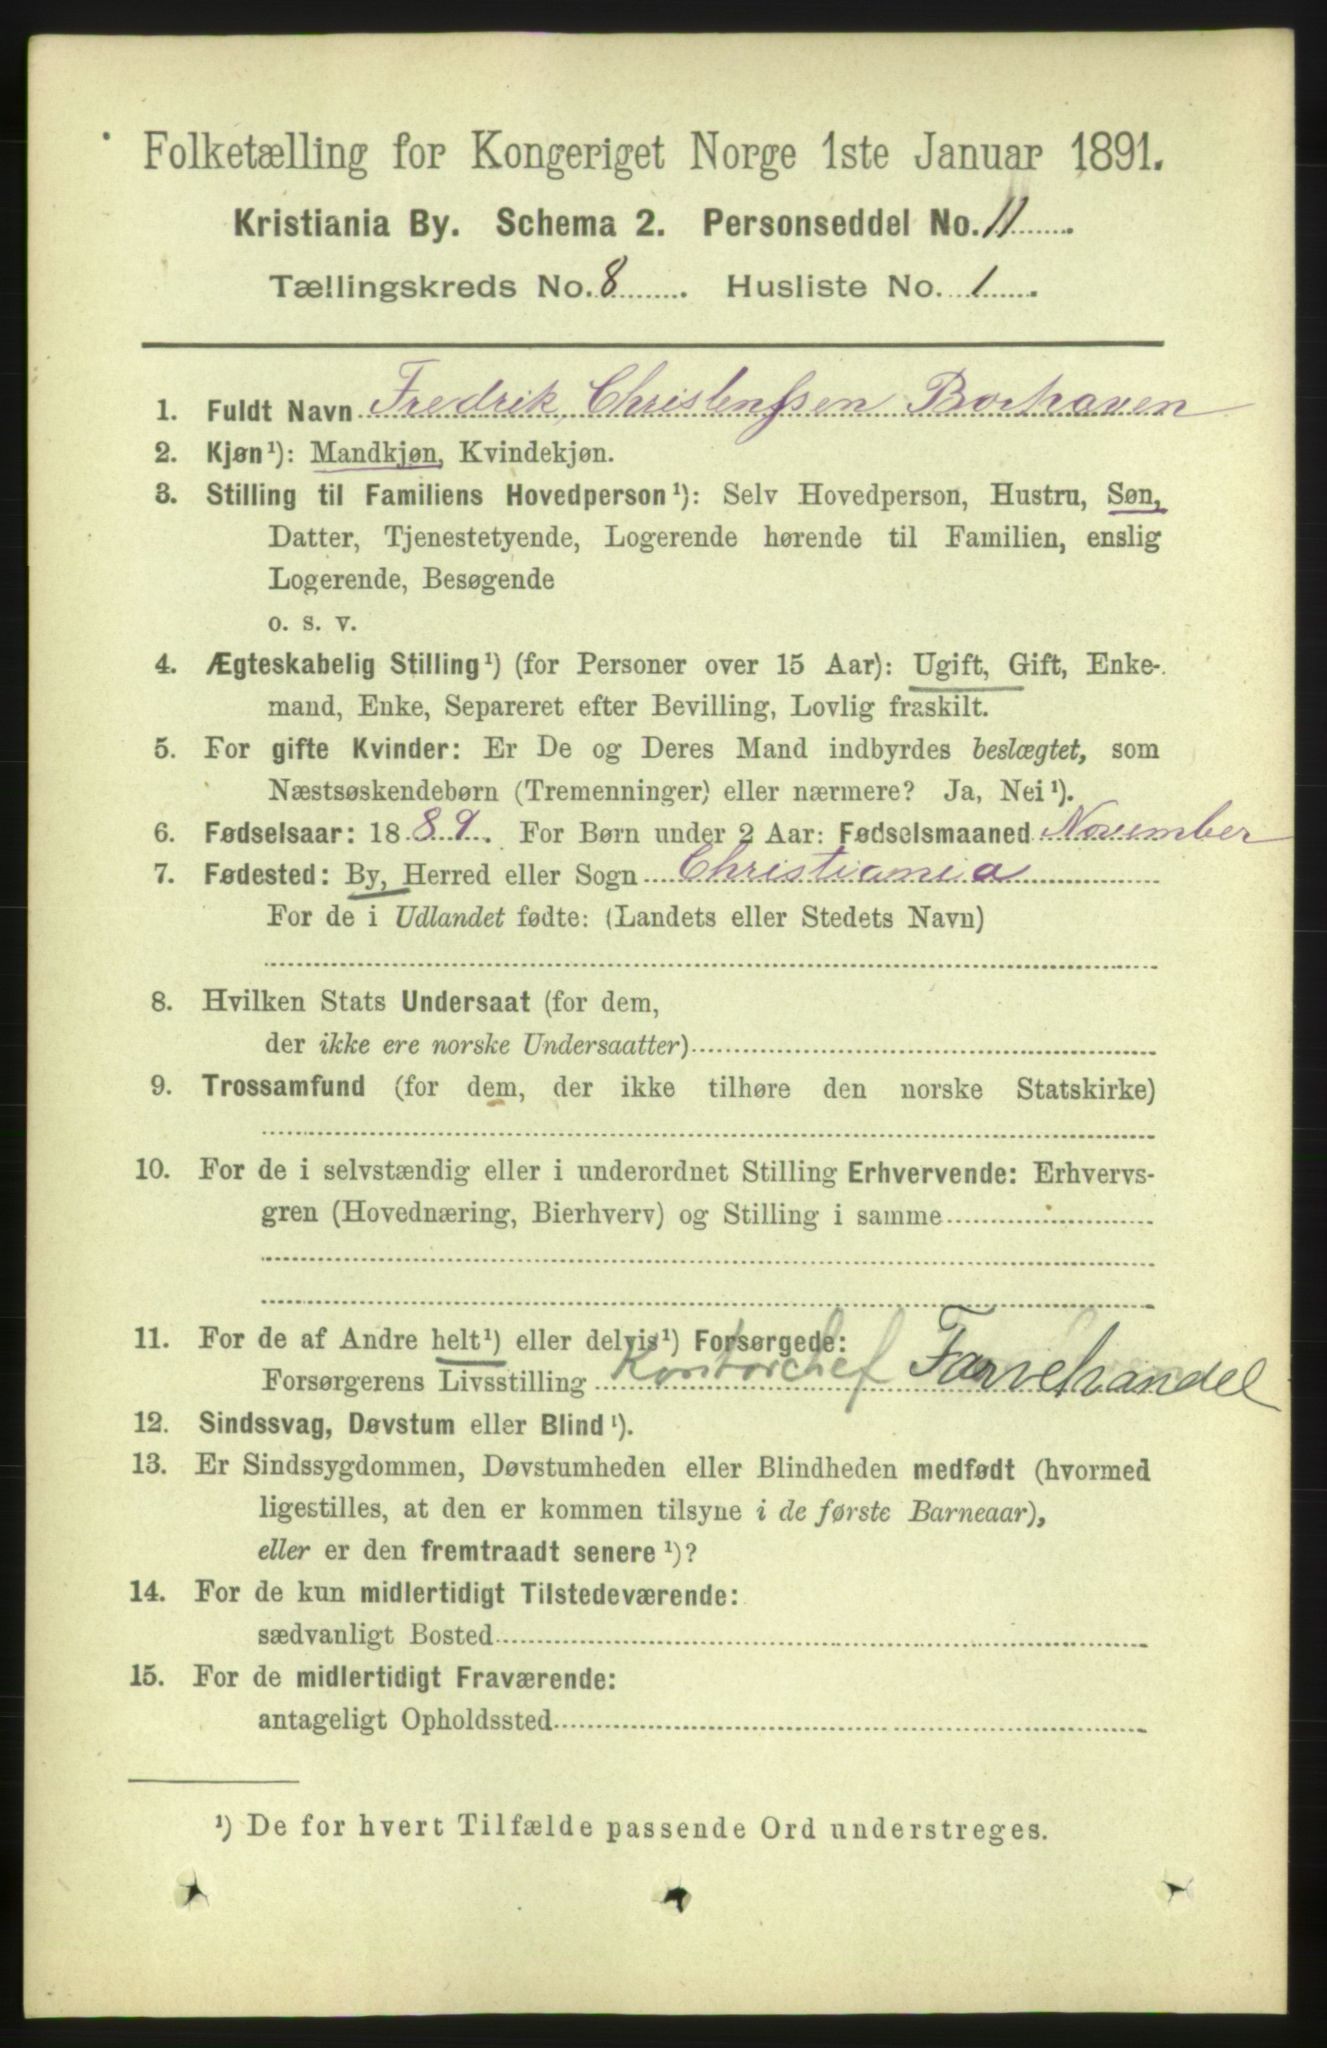 Folketælling for Kongeriget Norge 1ste Januar 1891.
Kristiania By. Schema 2. Personseddel No. 11
Tællingskreds No. 8. Husliste No. 1.
1. Fuldt Navn Fredrik, Christenssen Borhaven
2. Kjøn¹): Mandkjøn, Kvindekjøn.
3. Stilling til Familiens Hovedperson¹): Selv Hovedperson, Hustru, Søn,
Datter, Tjenestetyende, Logerende hørende til Familien, enslig
Logerende, Besøgende
o. s. v.
4. Ægteskabelig Stilling¹) (for Personer over 15 Aar): Ugift, Gift, Enke-
mand, Enke, Separeret efter Bevilling, Lovlig fraskilt.
5. For gifte Kvinder: Er De og Deres Mand indbyrdes beslægtet, som
Næstsøskendebørn (Tremenninger) eller nærmere? Ja, Nei¹).
6. Fødselsaar: 1889. For Børn under 2 Aar: Fødselsmaaned November
7. Fødested: By, Herred eller Sogn Christiania
For de i Udlandet fødte: (Landets eller Stedets Navn)
8. Hvilken Stats Undersaat (for dem,
der ikke ere norske Undersaatter)
9. Trossamfund (for dem, der ikke tilhøre den norske Statskirke)
10. For de i selvstændig eller i underordnet Stilling Erhvervende: Erhvervs-
gren (Hovednæring, Bierhverv) og Stilling i samme
11. For de af Andre helt¹) eller delvis¹) Forsørgede:
Forsørgerens Livsstilling Kontorchef Farvehandel
12. Sindssvag, Døvstum eller Blind¹).
13. Er Sindssygdommen, Døvstumheden eller Blindheden medfødt (hvormed
ligestilles, at den er kommen tilsyne i de første Barneaar),
eller er den fremtraadt senere¹)?
14. For de kun midlertidigt Tilstedeværende:
sædvanligt Bosted
15. For de midlertidigt Fraværende:
antageligt Opholdssted
¹) De for hvert Tilfælde passende Ord understreges.